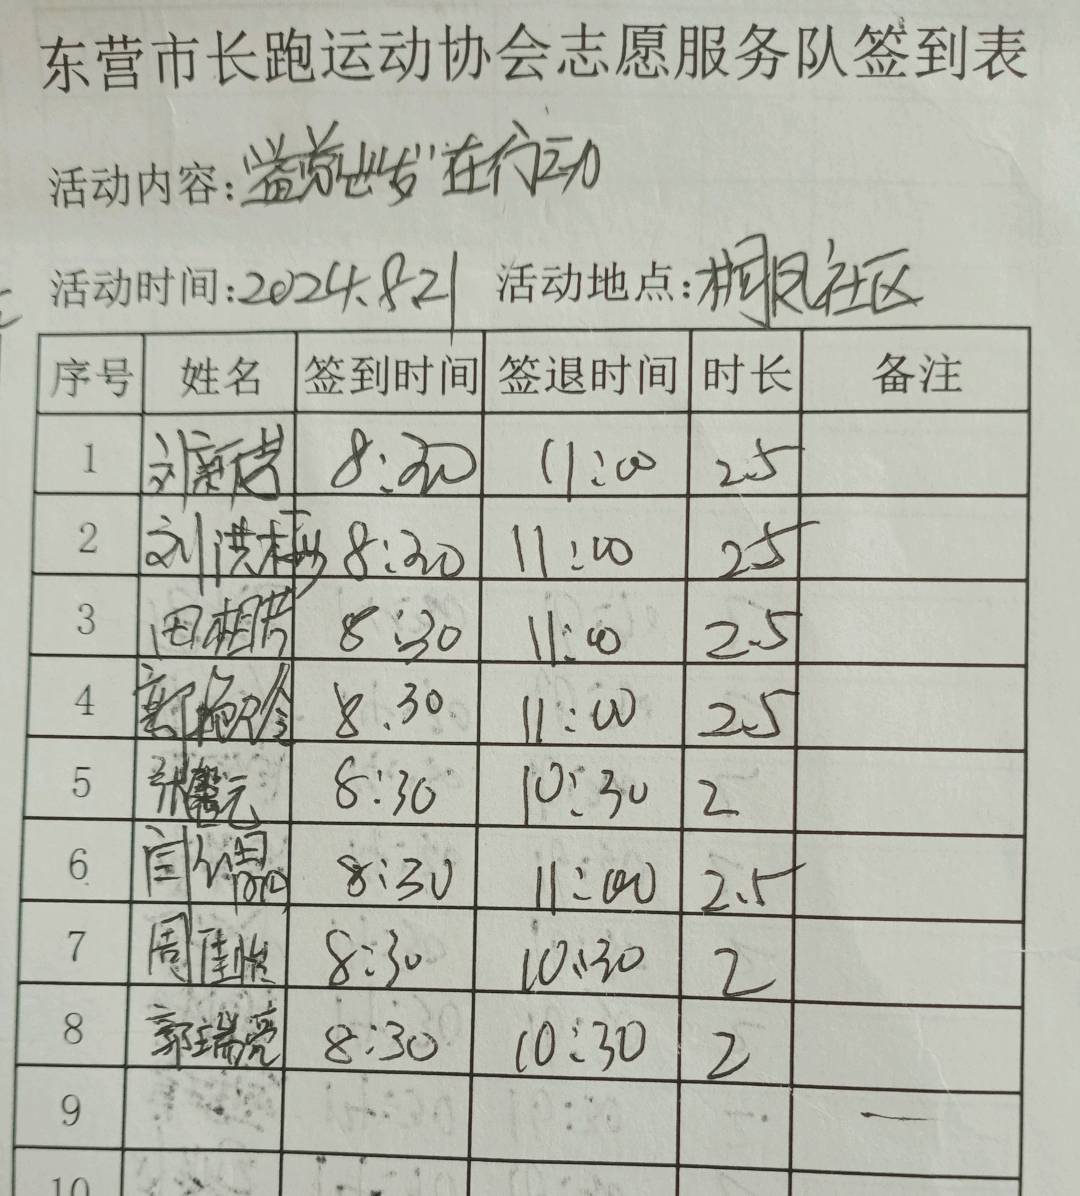 东营市长跑运动协会志愿服务队签到表
活动内容:"益劳进步"在行动
活动时间:2024.8.21 活动地点:桐凤社区
序号 姓名 签到时间 签退时间 时长 备注
1 8:30 11:00 2.5
2 刘洪梅 8:30 11:00 2.5
3 田相芳 8:30 11:00 2.5
4 8:30 11:00 2.5
5 8:30 10:30 2
6 8:30 11:00 2.5
7 周佳怡 8:30 10:30 2
8 郭瑞亮 8:30 10:30 2
9 —
10